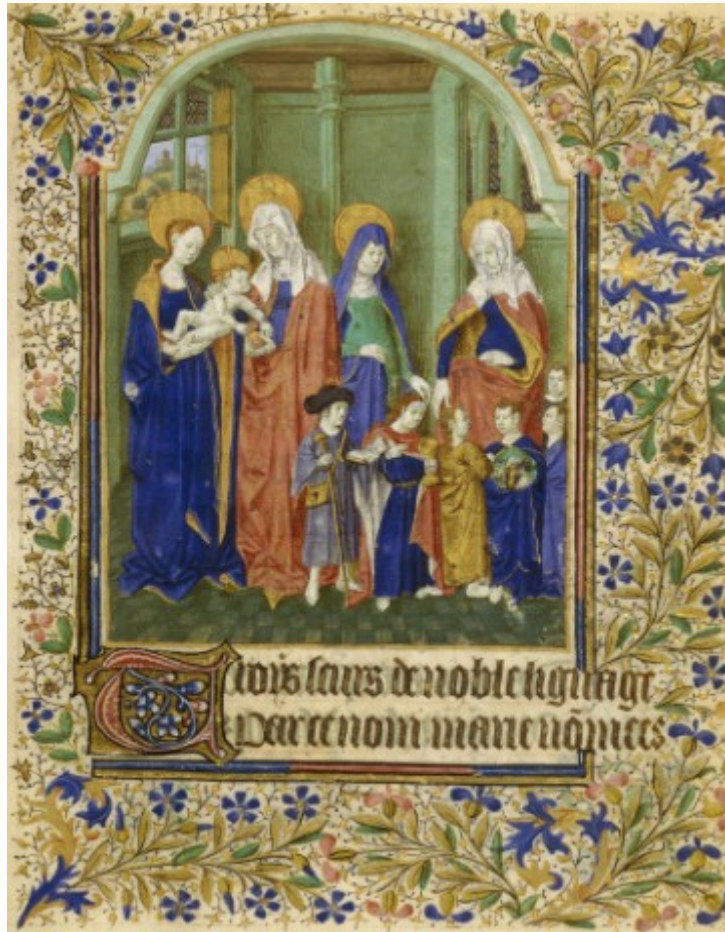 Trois seurs de noble lignage
Par ce nom marie nōmees